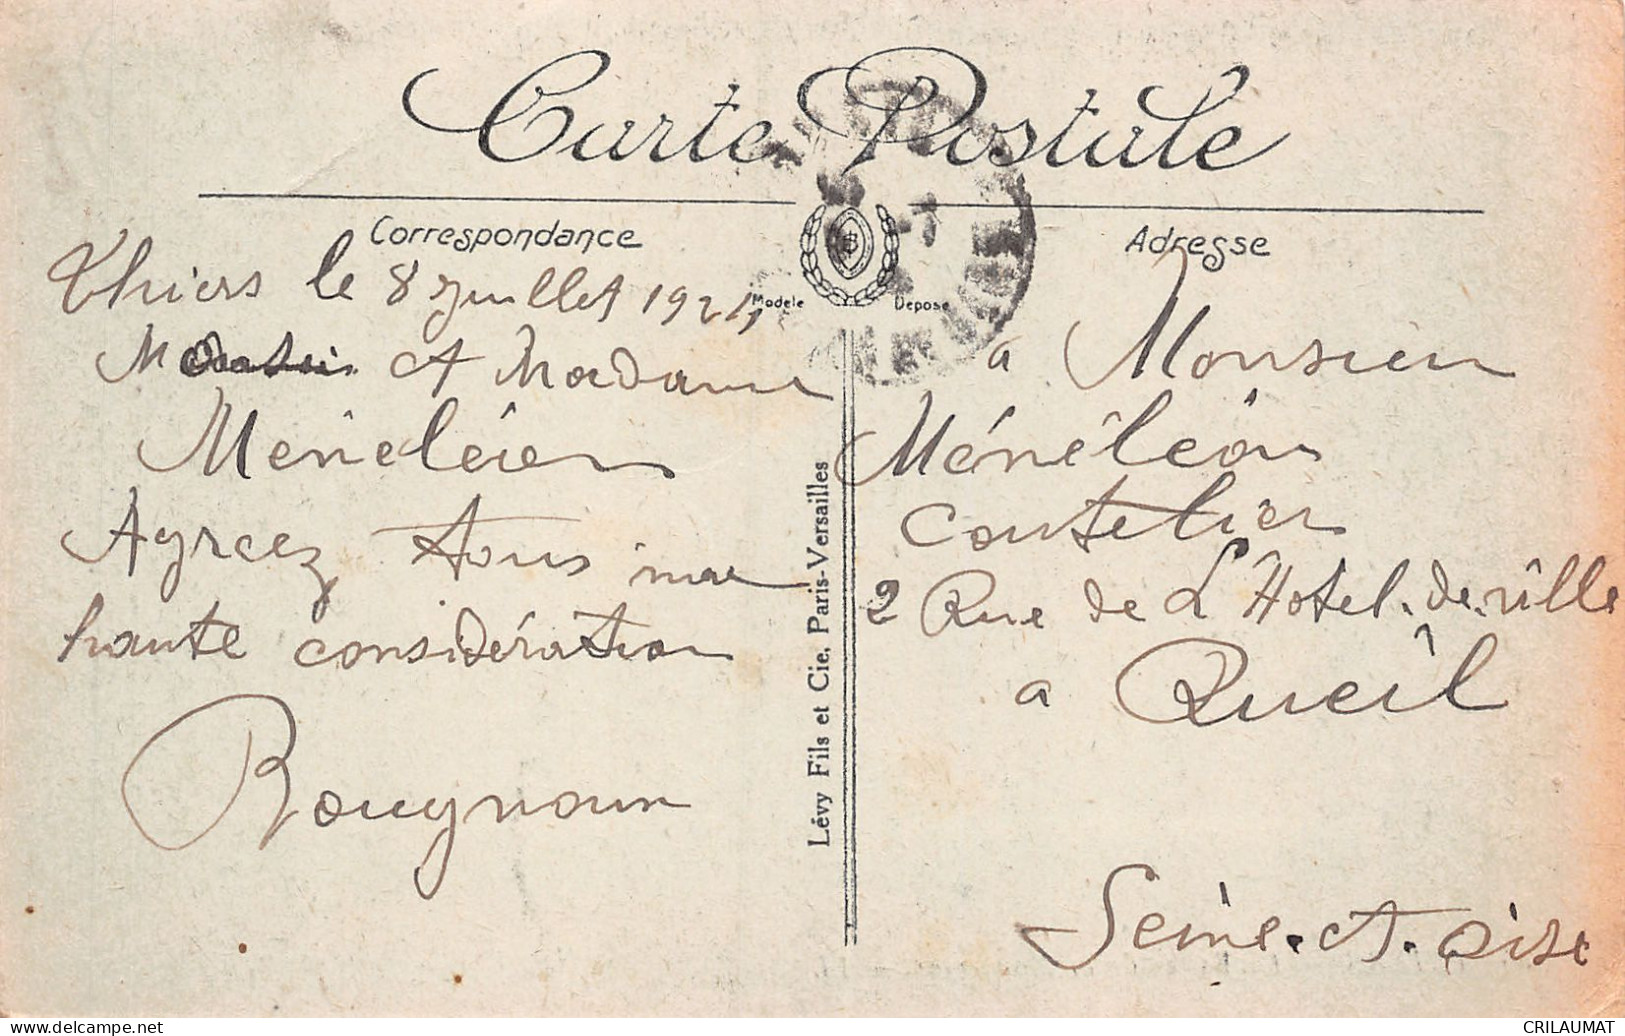 Carte Postale
Correspondance
Thiers le 8 juillet 1924
et Madame
Ménéléon
Agréez tous ma
haute considération
Rougnoun
Modèle Déposé
Lévy Fils et Cie, Paris-Versailles
Adresse
a Monsieur
Ménéléon
Coutelier
2 Rue de L'Hotel-de-ville
a Rueil
Seine-et-oise
delcampe.net
CRILAUMAT